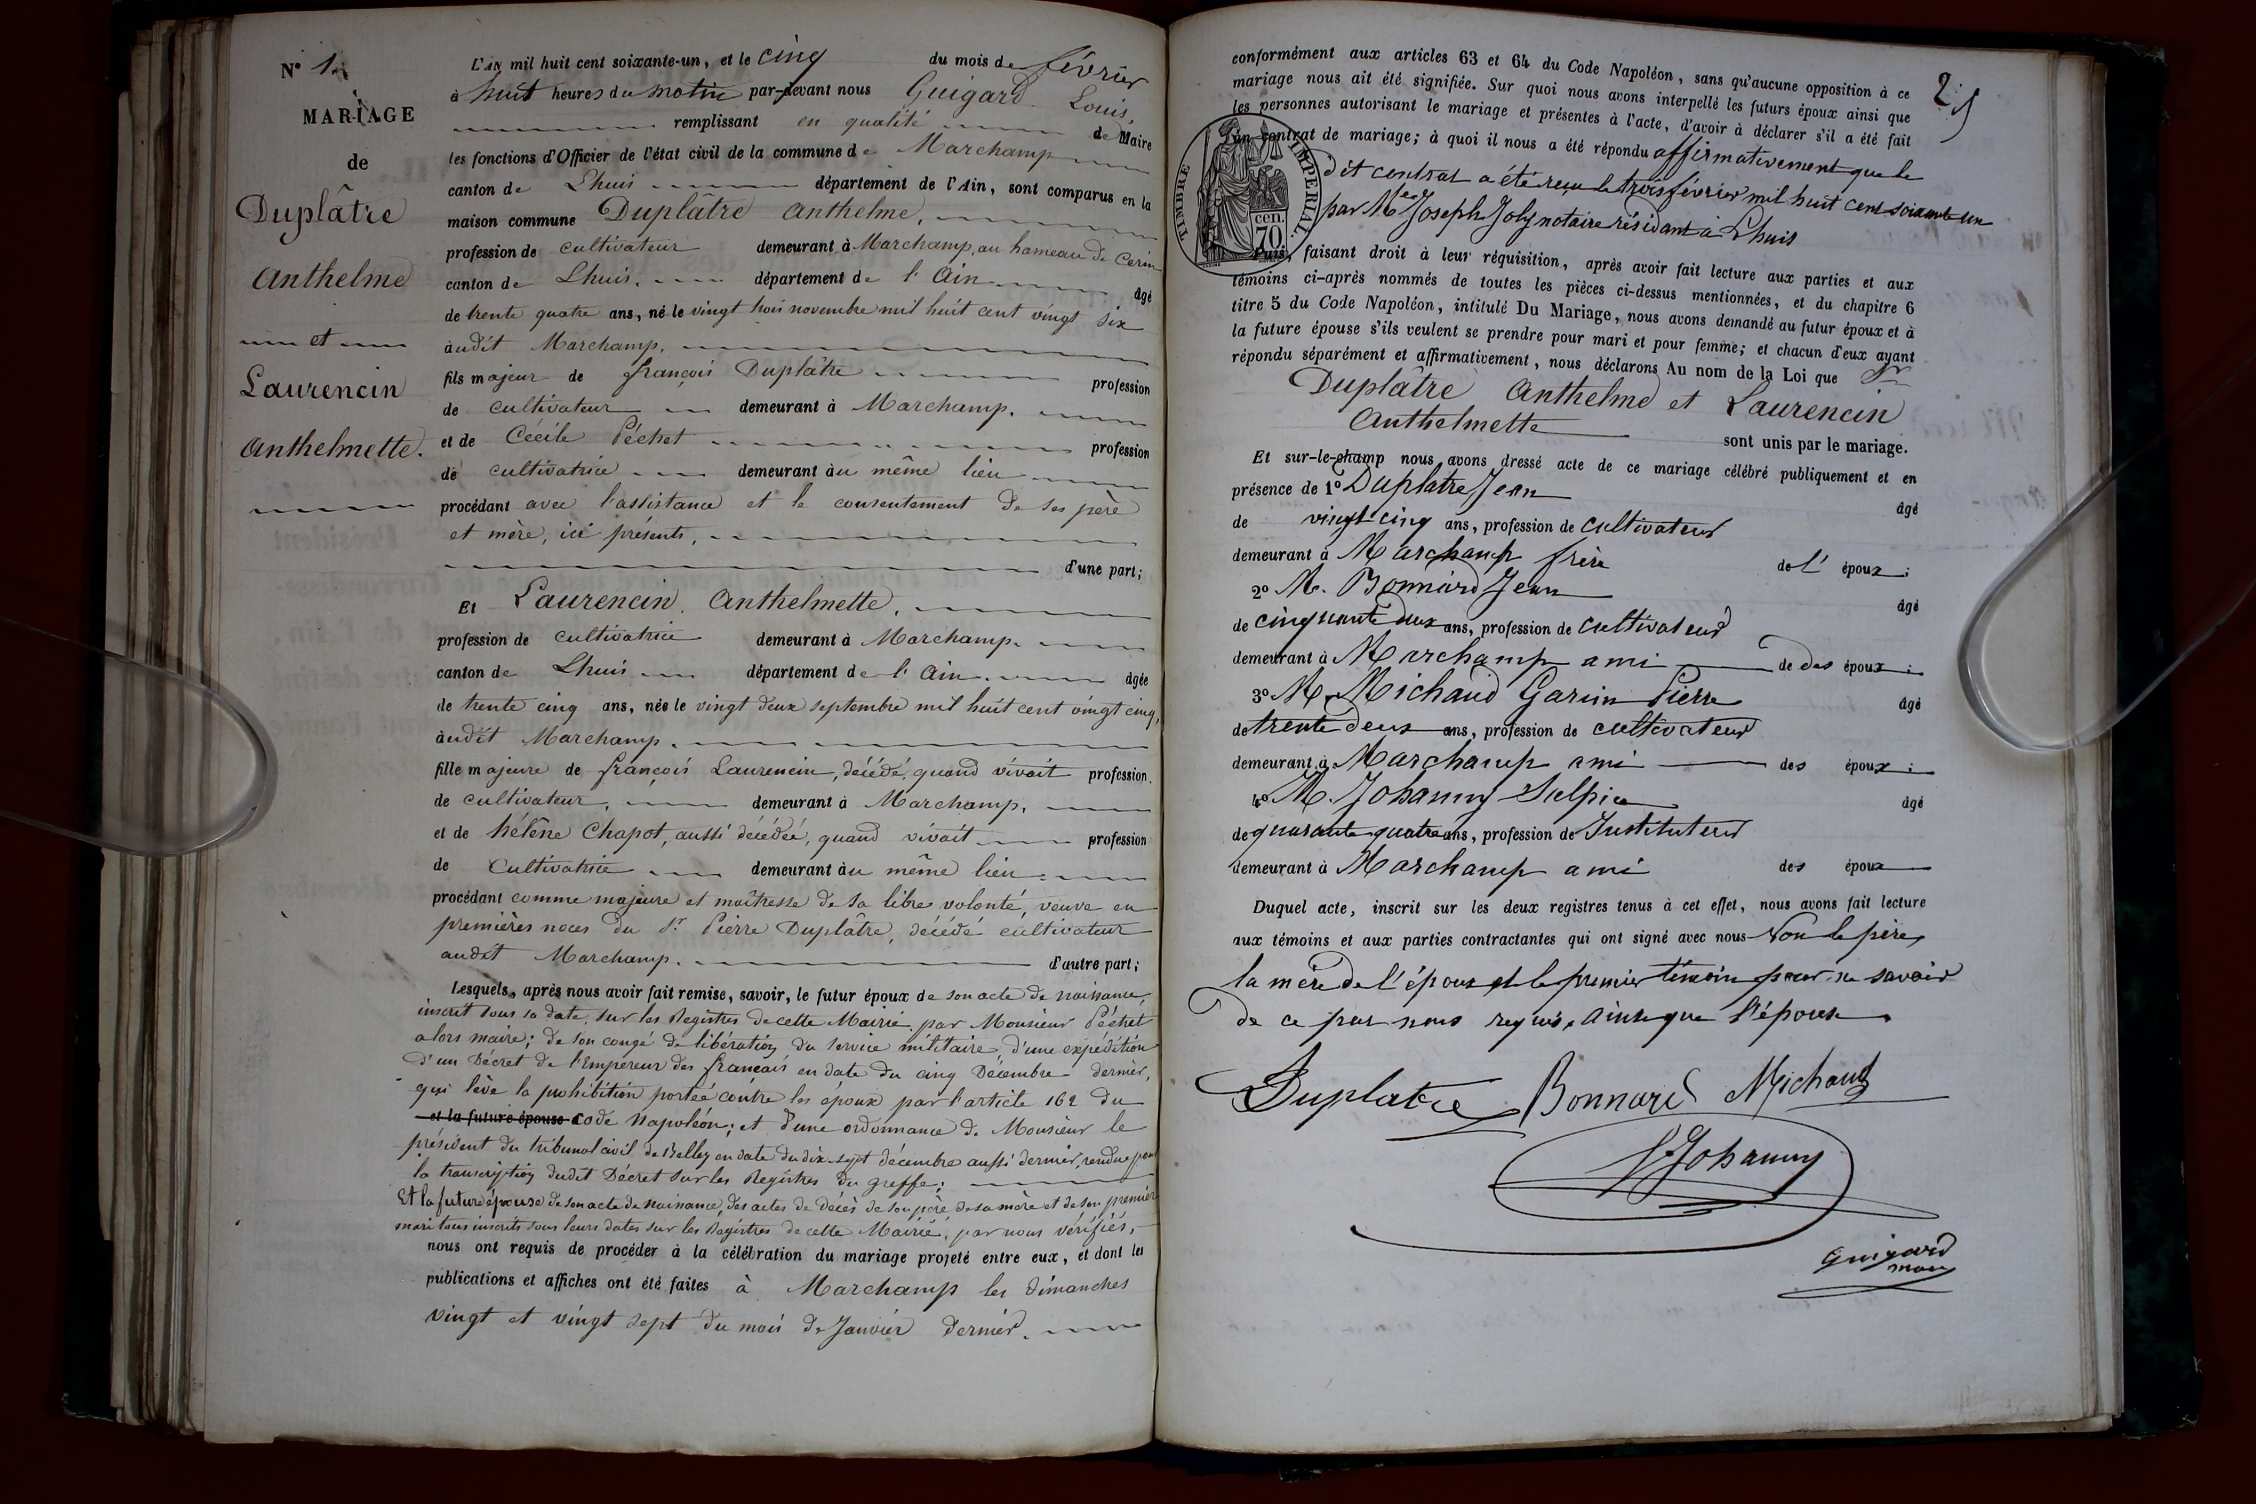 N° 1.
MARIAGE
de
Duplâtre
Anthelme
et
Laurencin
Anthelmette.
L'AN mil huit cent soixante-un, et le cinq du mois de février
à huit heures du matin par-devant nous Guigard Louis,
remplissant en qualité de Maire
les fonctions d'Officier de l'état civil de la commune de Marchamp
canton de Lhuis département de l'Ain, sont comparus en la
maison commune Duplâtre Anthelme,
profession de cultivateur demeurant à Marchamp, au hameau de Cerin
canton de Lhuis. département de l'Ain âgé
de trente quatre ans, né le vingt trois novembre mil huit cent vingt six
audit Marchamp,
fils majeur de françois Duplâtre profession
de cultivateur demeurant à Marchamp.
et de Cécile Péchet profession
de cultivatrice demeurant au même lieu
procédant avec l'assistance et le consentement de ses père
et mère, ici présents,
d'une part;
Et Laurencin Anthelmette,
profession de cultivatrice demeurant à Marchamp.
canton de Lhuis département de l'Ain. âgée
de trente cinq ans, née le vingt deux septembre mil huit cent vingt cinq,
audit Marchamp.
fille majeure de françois Laurencin, décédé, quand vivait profession
de cultivateur, demeurant à Marchamp,
et de hélène Chapot, aussi décédée, quand vivait profession
de Cultivatrice demeurant au même lieu
procédant comme majeure et maîtresse de sa libre volonté, veuve en
premières noces du Sr. Pierre Duplâtre, décédé cultivateur
audit Marchamp. d'autre part;
Lesquels, après nous avoir fait remise, savoir, le futur époux de son acte de naissance,
inscrit sous sa date, sur les Registres de cette Mairie par Monsieur Péchet
alors maire; de son congé de libération du service militaire, d'une expédition
d'un Décret de l'Empereur des français en date du cinq Décembre dernier,
qui lève la prohibition portée contre les époux par l'article 162 du
et la future épouse Code Napoléon; et d'une ordonnance de Monsieur le
président du tribunal civil de Belley en date du dix-sept décembre aussi dernier, rendue pour
la transcription dudit Décret sur les Registres du greffe;
Et la future épouse de son acte de naissance, des actes de décès de son père de sa mère et de son premier
mari tous inscrits sous leurs dates sur les Registres de cette Mairie, par nous vérifiés,
nous ont requis de procéder à la célébration du mariage projeté entre eux, et dont les
publications et affiches ont été faites à Marchamp les dimanches
vingt et vingt sept du mois de Janvier dernier.
2
conformément aux articles 63 et 64 du Code Napoléon, sans qu'aucune opposition à ce
mariage nous ait été signifiée. Sur quoi nous avons interpellé les futurs époux ainsi que
les personnes autorisant le mariage et présentes à l'acte, d'avoir à déclarer s'il a été fait
un contrat de mariage; à quoi il nous a été répondu affirmativement que le
dit contrat a été reçu le trois février mil huit cent soixante un
par Me Joseph Joly notaire résidant à Lhuis
TIMBRE IMPERIAL
70 cen.
Puis, faisant droit à leur réquisition, après avoir fait lecture aux parties et aux
témoins ci-après nommés de toutes les pièces ci-dessus mentionnées, et du chapitre 6
titre 5 du Code Napoléon, intitulé Du Mariage, nous avons demandé au futur époux et à
la future épouse s'ils veulent se prendre pour mari et pour femme; et chacun d'eux ayant
répondu séparément et affirmativement, nous déclarons Au nom de la Loi que
Duplâtre Anthelme et Laurencin
Anthelmette sont unis par le mariage.
Et sur-le-champ nous avons dressé acte de ce mariage célébré publiquement et en
présence de 1° Duplatre Jean âgé
de vingt cinq ans, profession de cultivateur
demeurant à Marchamp frère de l' époux;
2° M. Bonnard Jean âgé
de cinquante deux ans, profession de cultivateur
demeurant à Marchamp ami de des époux;
3° M. Michaud Garin Pierre âgé
de trente deux ans, profession de cultivateur
demeurant à Marchamp ami des époux;
4° M. Johanny Sulpice âgé
de quarante quatre ans, profession de Instituteur
demeurant à Marchamp ami des époux
Duquel acte, inscrit sur les deux registres tenus à cet effet, nous avons fait lecture
aux témoins et aux parties contractantes qui ont signé avec nous Non le père,
la mère de l'époux et le premier témoin pour ne savoir
de ce par nous requis, ainsi que l'épouse
Duplatre Bonnard Michaud
S Johanny
Guigard
maire